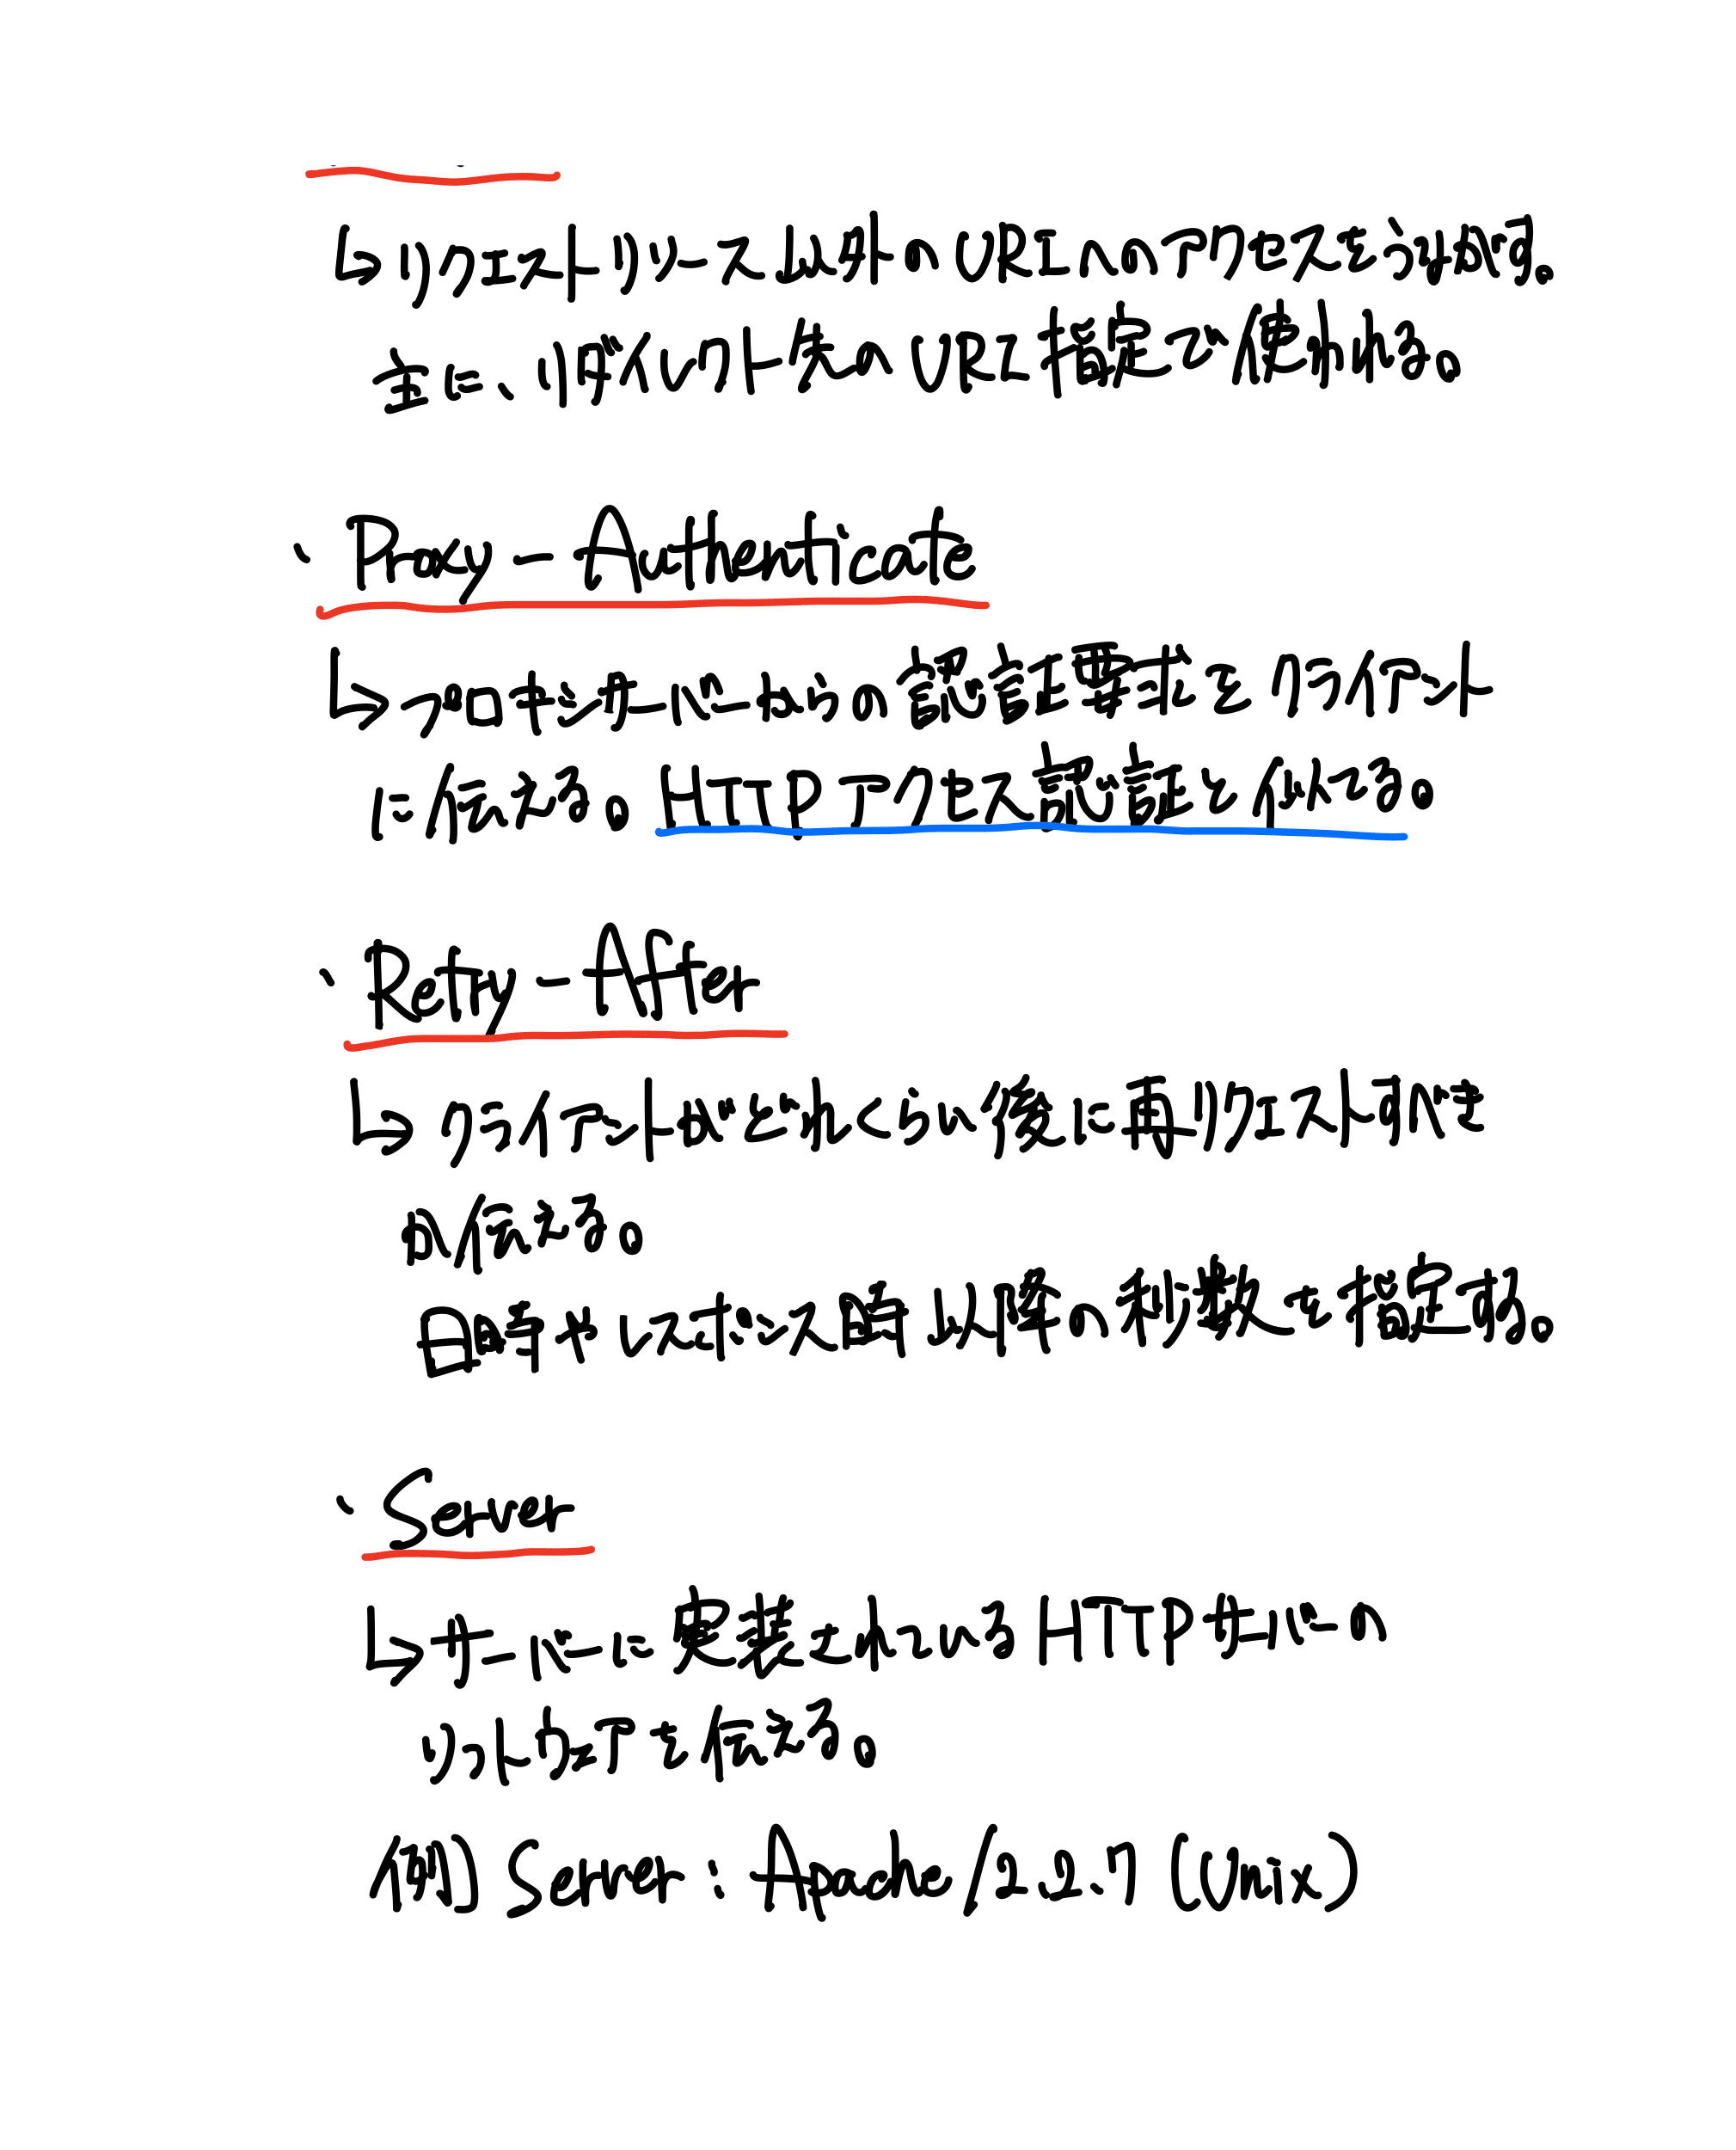 ↳ リクエストリソース以外のURIへのアクセスをうながす。
主に、リダイレクト先のURIを指定で使われる。
・Proxy-Authenticate
↳ プロキシサーバーからの認証要求をクライアント
に伝える。HTTPアクセス認証と似てる。
・Retry-After
↳ クライアントがどれくらい後に再リクエストすべき
か伝える。
日時やレスポンス時以降の秒数を指定する。
・Server
↳ サーバーに実装されているHTTPサーバーの
ソフトウェアを伝える。
(例) Server: Apache/2.2.7 (Unix)